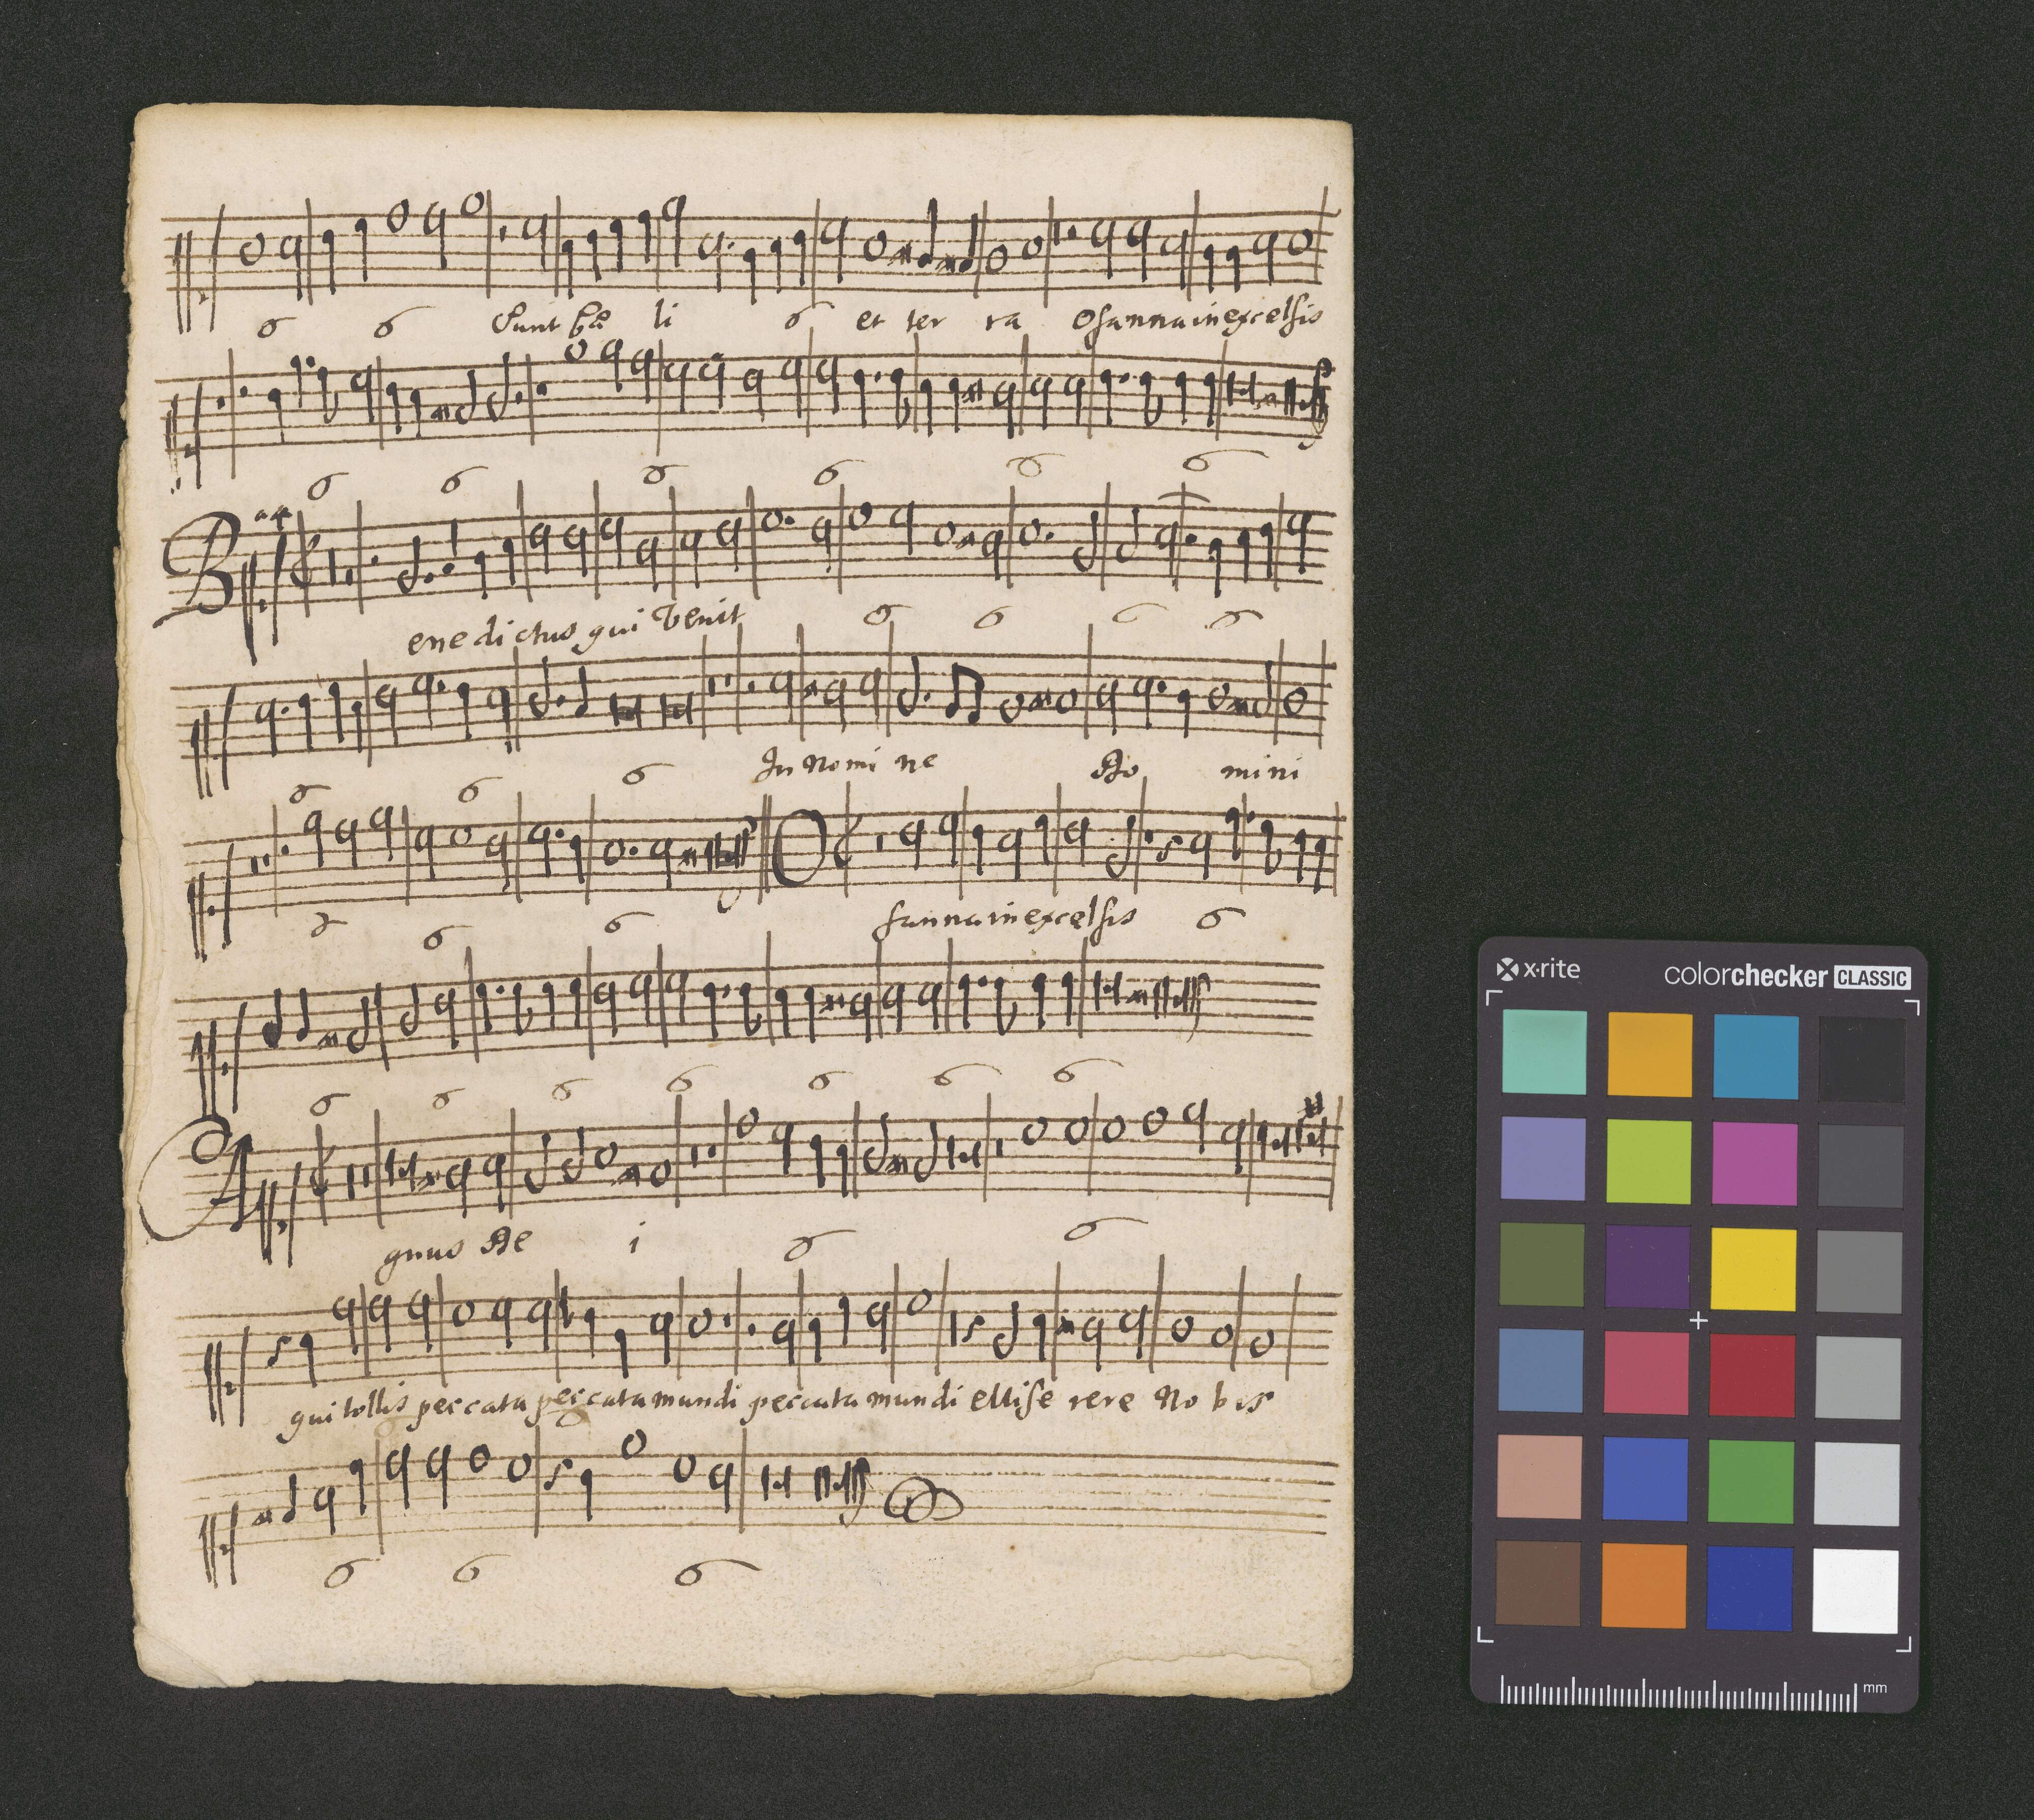 Sunt li et ter ra Osanna in excelsis
Benedictus qui Venit
In Nomi ne Do mini
Osanna in excelsis
Agnus De i
qui tollis peccata peccata mundi peccata mundi Mise rere No bis
x-rite
colorchecker CLASSIC
mm